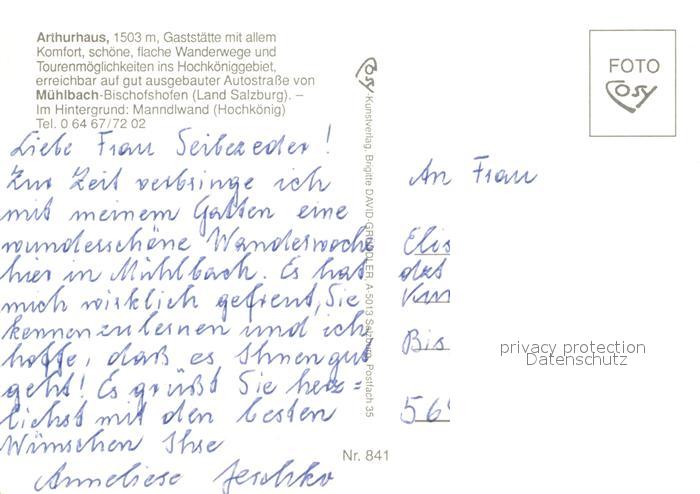 Arthurhaus, 1503 m, Gaststätte mit allem
Komfort, schöne, flache Wanderwege und
Tourenmöglichkeiten ins Hochköniggebiet,
erreichbar auf gut ausgebauter Autostraße von
Mühlbach-Bischofshofen (Land Salzburg). –
Im Hintergrund: Manndlwand (Hochkönig)
Tel. 0 64 67/72 02
Liebe Frau Seibezeder!
Zur Zeit verbringe ich
mit meinem Gatten eine
wunderschöne Wanderwoche
hier in Mühlbach. Es hat
mich wirklich gefreut, Sie
kennenzulernen und ich
hoffe, daß es Ihnen gut
geht! Es grüßt Sie herz=
lichst mit den besten
Wünschen Ihre
Anneliese Jeschko
Cosy-Kunstverlag, Brigitte DAVID-GRÜNDLER, A-5013 Salzburg, Postfach 35
Nr. 841
FOTO
Cosy
An Frau
Elis
Bis
56
privacy protection
Datenschutz